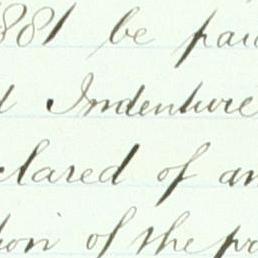 1881 be paid
Indenture
clared of an
tion of the